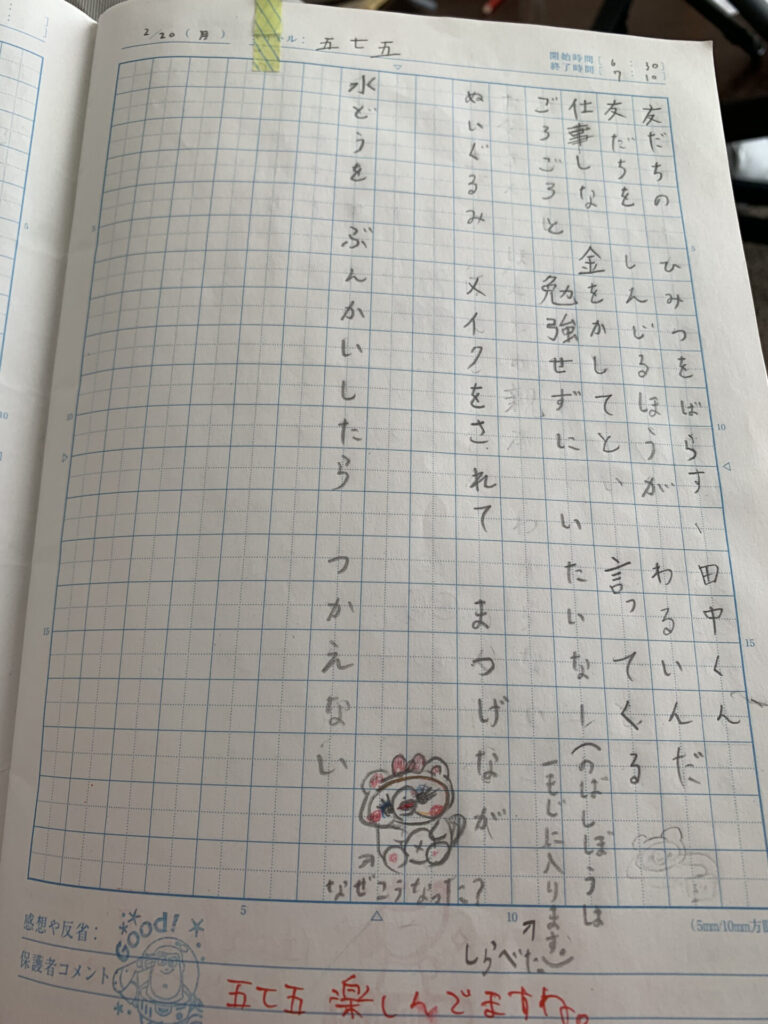 2/20(月)
タイトル: 五七五
開始時間 [ 6 : 30 ]
終了時間 [ 7 : 10 ]
友だちの ひみつをばらす、 田中くん
友だちを しんじるほうが、 わるいんだ
仕事しな 金をかしてと、 言ってくる
ごろごろと 勉強せずに いたいなー(のばしぼうは
一もじに入ります。)
しらべた
ぬいぐるみ メイクをされて まつげなが
水どうを ぶんかいしたら つかえない
なぜこうなった?
5
10
15
5
10
(5mm/10mm方眼
感想や反省:
保護者コメント:
GOOD!
五七五 楽しんでますね。